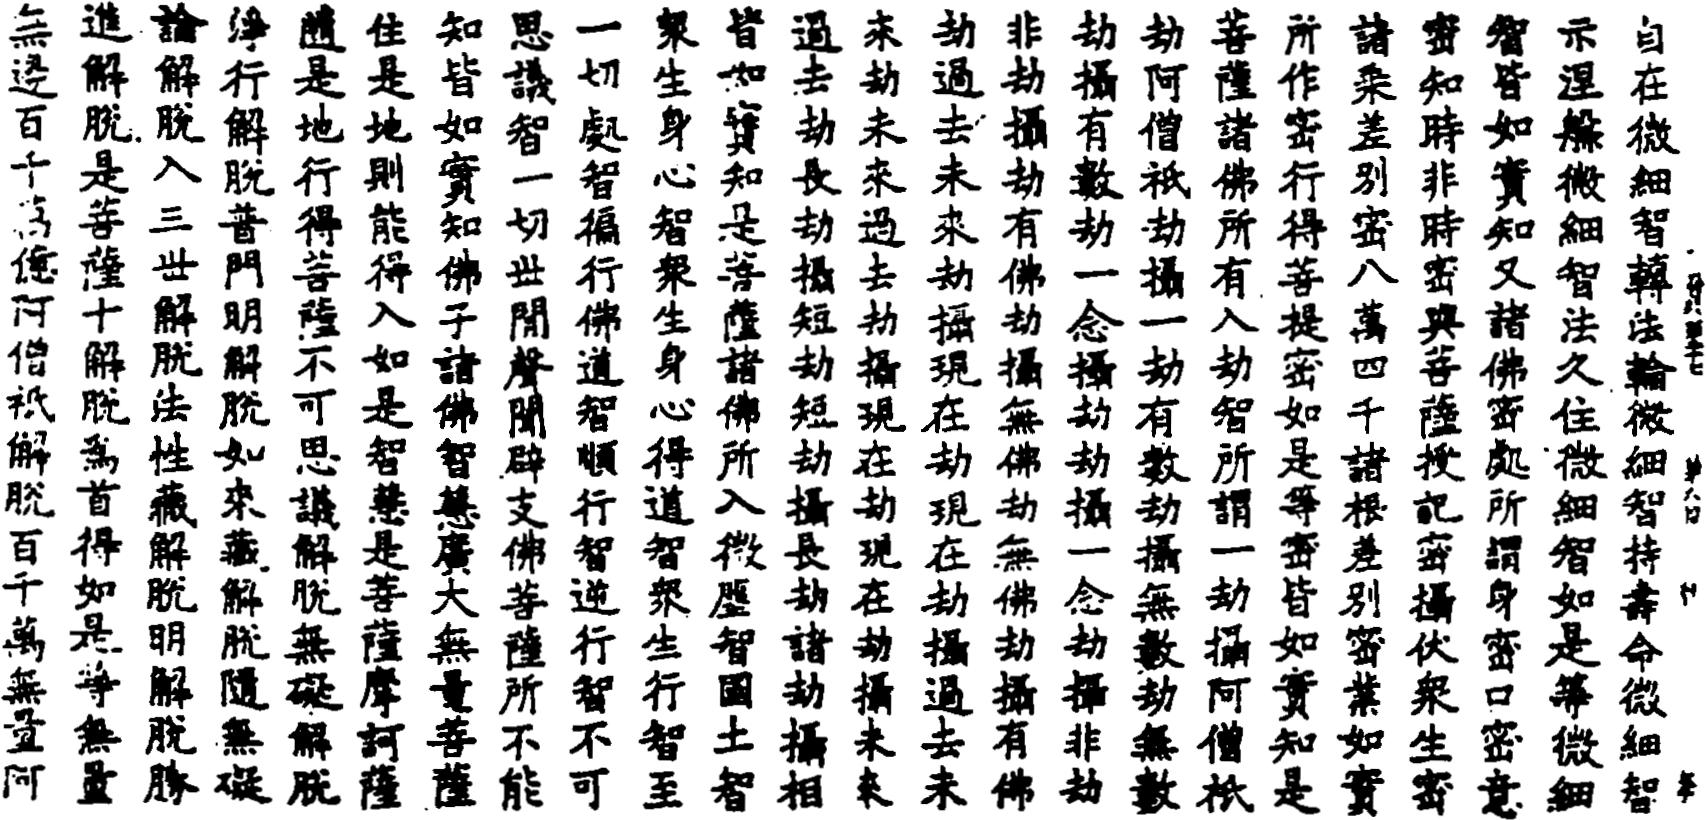 自在微細智轉法輪微細智持壽命微細智
示涅槃微細智法久住微細智如是等微細
智皆如實知又諸佛密處所謂身密口密意
密知時非時密與菩薩授記密攝伏衆生密
諸乘差別密八萬四千諸根差別密業如實
所作密行得菩提密如是等密皆如實知是
菩薩諸佛所有入劫智所謂一劫攝阿僧祇
劫阿僧祇劫攝一劫有數劫攝無數劫無數
劫攝有數劫一念攝劫劫攝一念劫攝非劫
非劫攝劫有佛劫攝無佛劫無佛劫攝有佛
劫過去未來劫攝現在劫現在劫攝過去未
來劫未來過去劫攝現在劫現在劫攝未來
過去劫長劫攝短劫短劫攝長劫諸劫攝相
皆如實知是菩薩諸佛所入微塵智國土智
衆生身心智衆生身心得道智衆生行智至
一切處智徧行佛道智順行智逆行智不可
思議智一切世間聲聞辟支佛菩薩所不能
知皆如實知佛子諸佛智慧廣大無量菩薩
住是地則能得入如是智慧是菩薩摩訶薩
隨是地行得菩薩不可思議解脫無礙解脫
淨行解脫普門明解脫如來藏解脫隨無礙
論解脫入三世解脫法性藏解脫明解脫勝
進解脫是菩薩十解脫為首得如是等無量
無邊百千萬億阿僧祇解脫百千萬無量阿